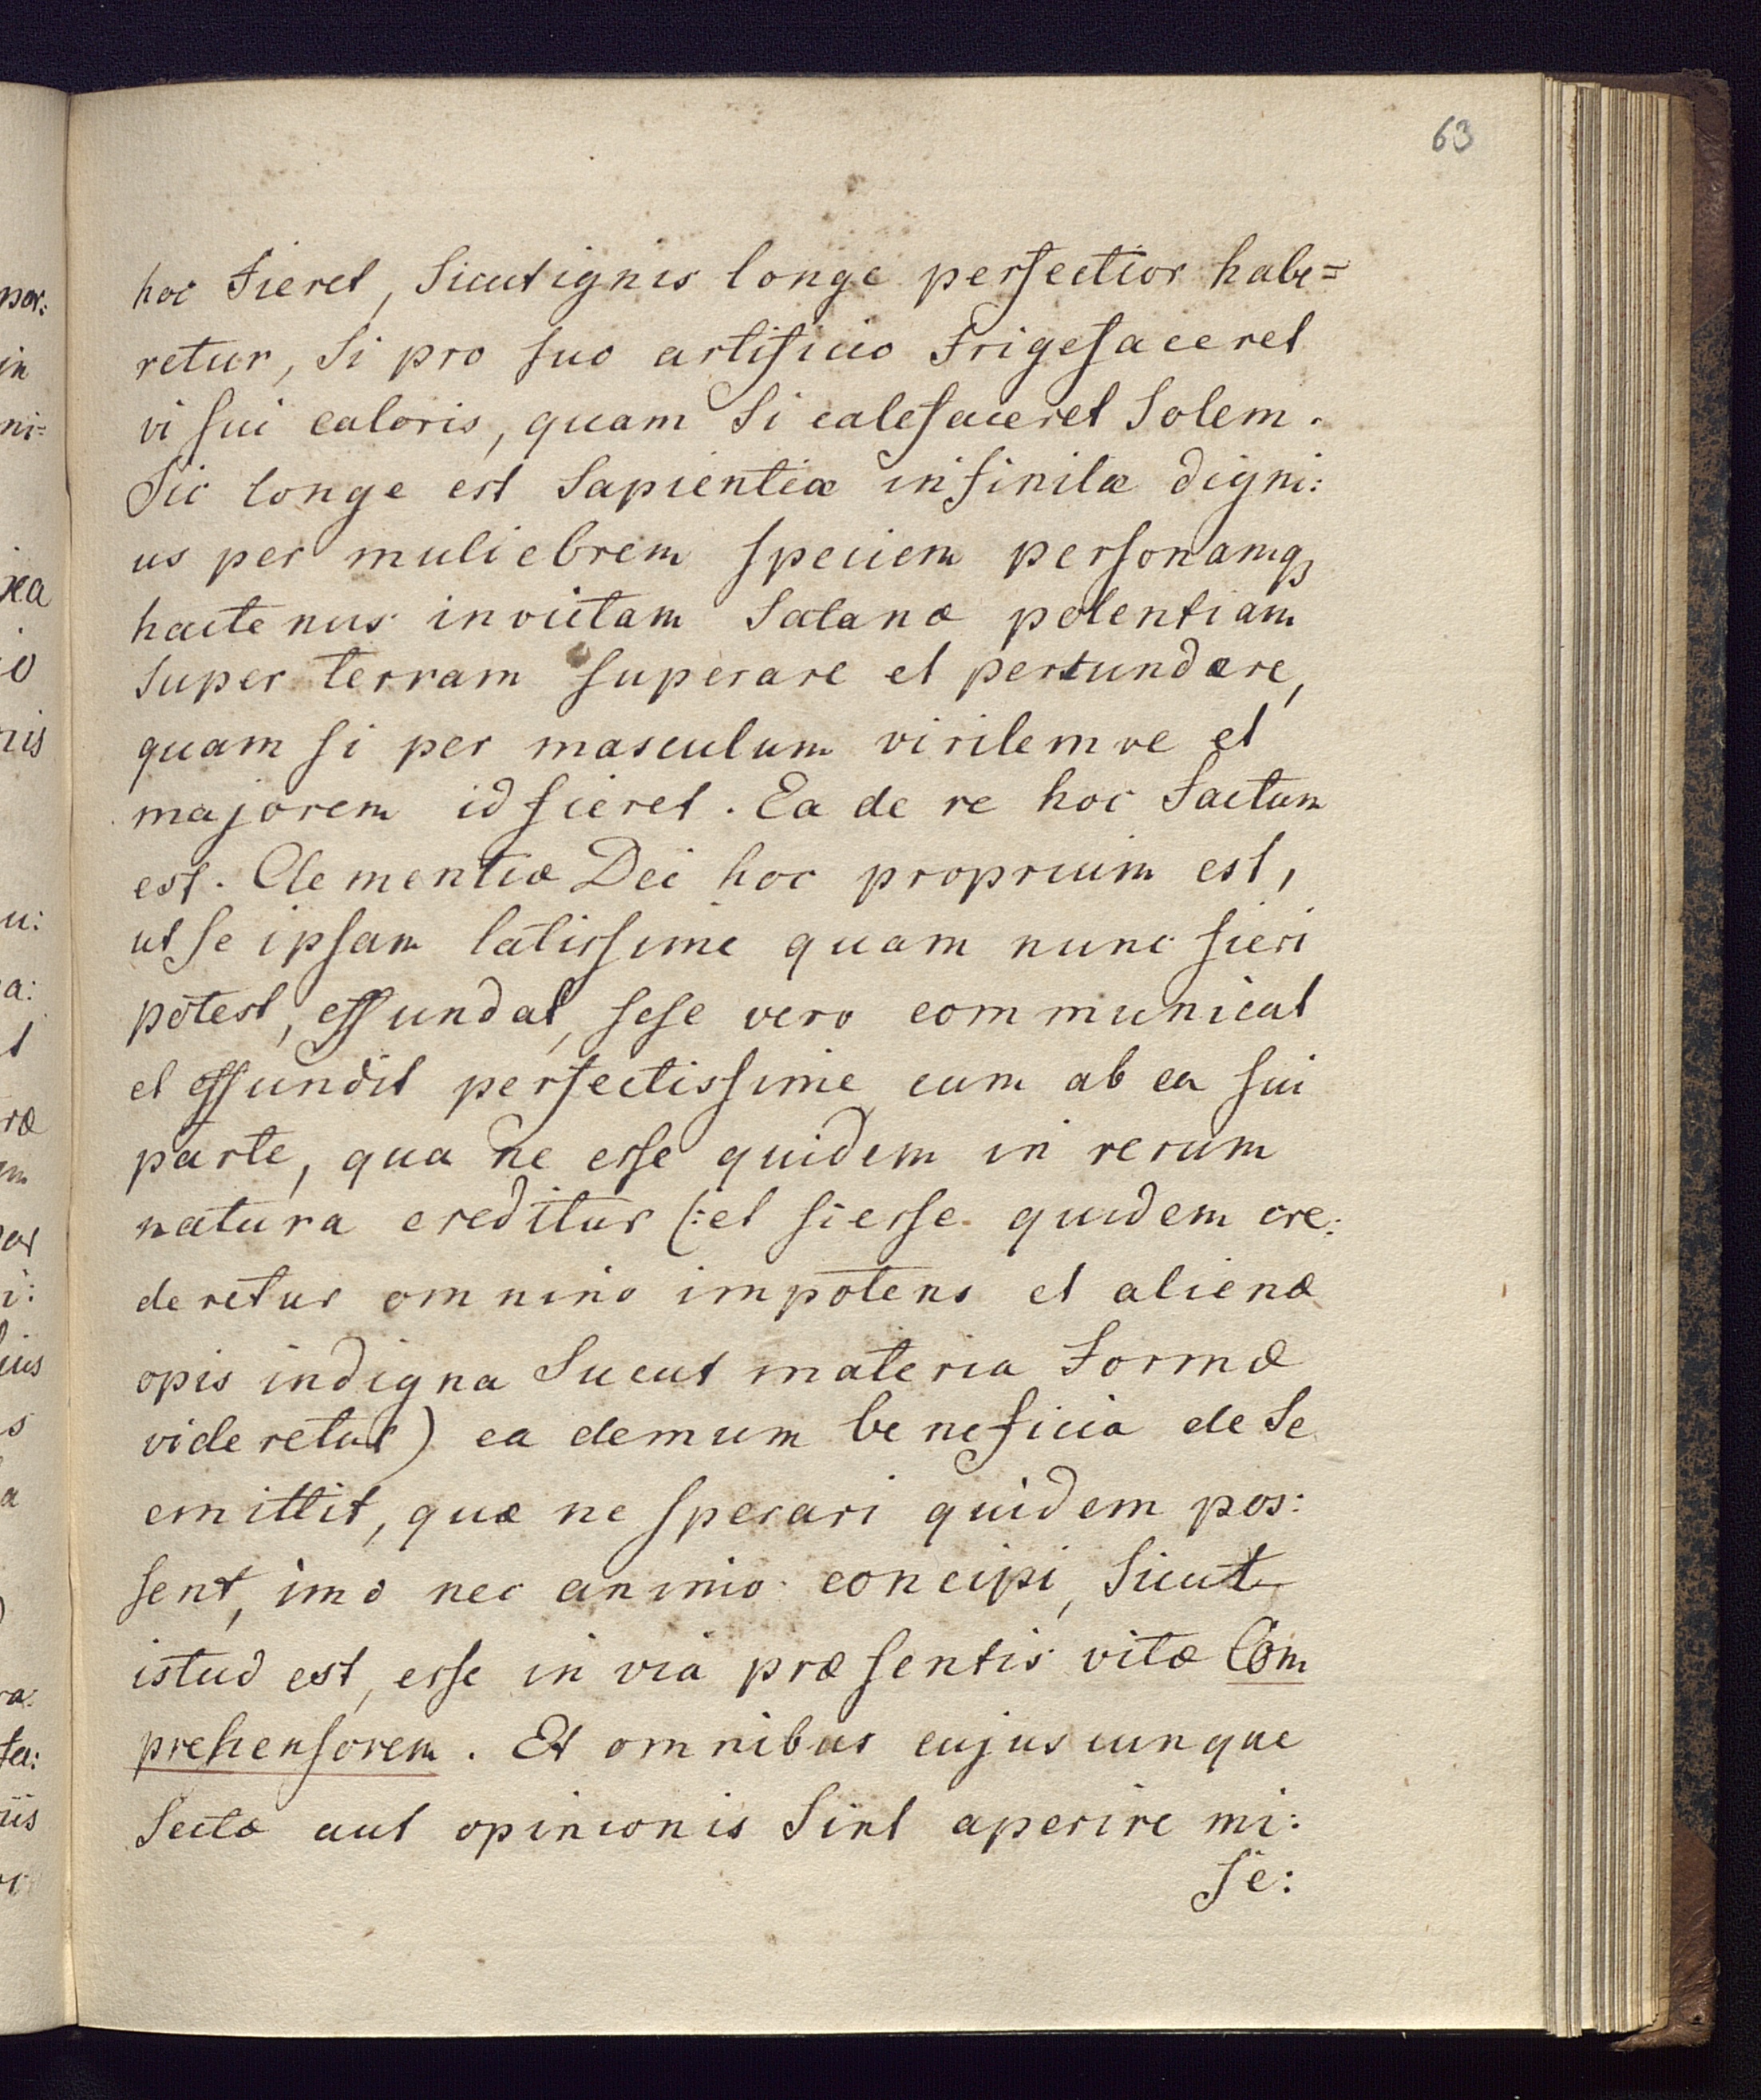 63
hoc fieret, sicut ignis longe perfectior habe=
retur, si pro suo artificio frigefaceret
vi sui caloris, quam si calefaceret solem.
Sic longe est sapientiæ infinitæ digni:
us per muliebrem speciem personamq̨
hactenus invictam Satanæ potentiam
super terram superare et pertundere,
quam si per masculum virilemve et
majorem id fieret. Ea de re hoc factum
est. Clementiæ Dei hoc proprium est,
ut se ipsam latissime quam nunc fieri
potest, effundat, sese vero communicat
et effundit perfectissime cum ab ea sui
parte, qua ne esse quidem in rerum
natura creditur (: et si esse quidem cre:
deretur omnino impotens et alienæ
opis indigna sucut materia formæ
videretur) ea demum beneficia de se
emittit, quæ ne sperari quidem pos:
sent, imo nec animo concipi, sicut
istud est, esse in via præsentis vitæ Com
prehensorem. Et omnibus cujuscunque
sectæ aut opinionis sint aperire mi:
se:
por:
in
ni=
xa
io
nis
u:
a:
t
ræ
i:
ius
s
a
ra:
fa:
iis